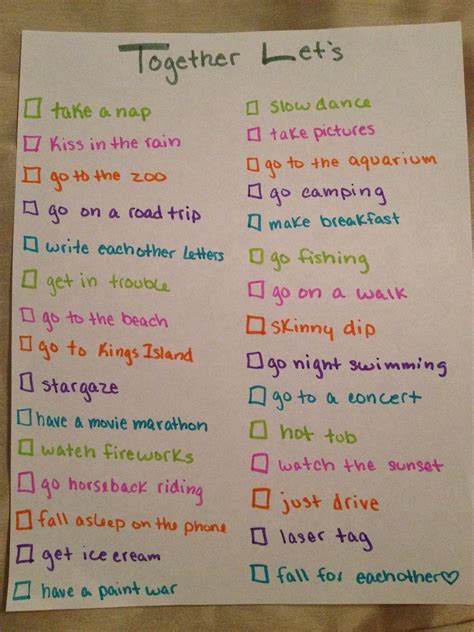 Together Let's
take a nap
Kiss in the rain
go to the zoo
go on a road trip
write eachother letters
get in trouble
go to the beach
go to Kings Island
stargaze
have a movie marathon
watch fireworks
go horseback riding
fall asleep on the phone
get ice cream
have a paint war
slow dance
take pictures
go to the aquarium
go camping
make breakfast
go fishing
go on a walk
skinny dip
go night swimming
go to a concert
hot tub
watch the sunset
just drive
laser tag
fall for eachother♡